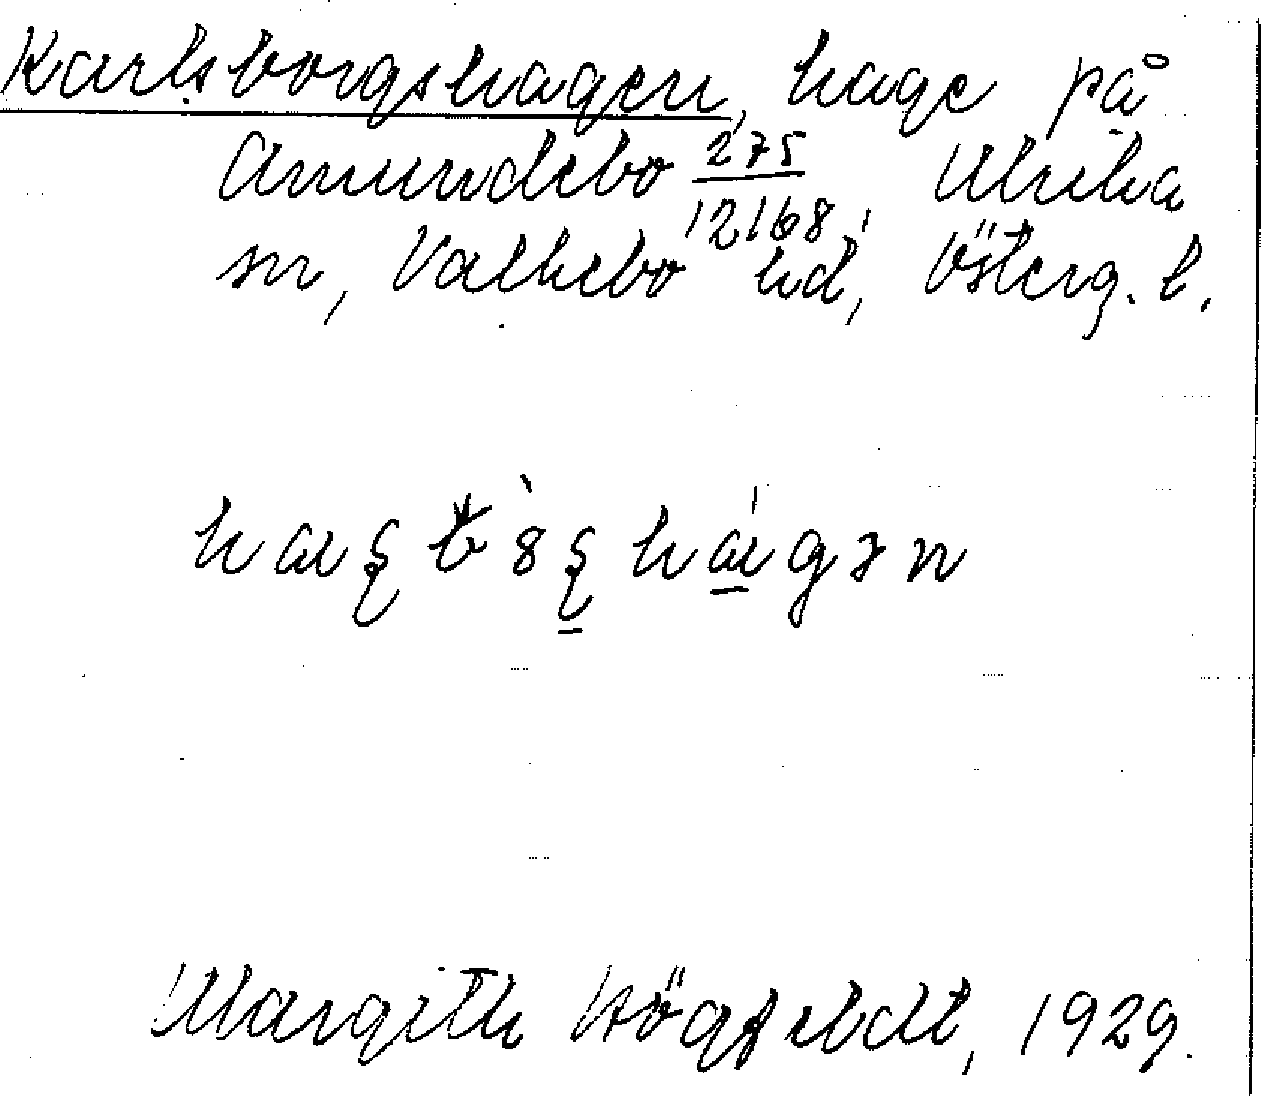 Karlsborgshagen, hage på
Amundebo 275/12168, Ulrika
sn, Valkebo hd, Österg. l.
Margith Högfeldt, 1929.